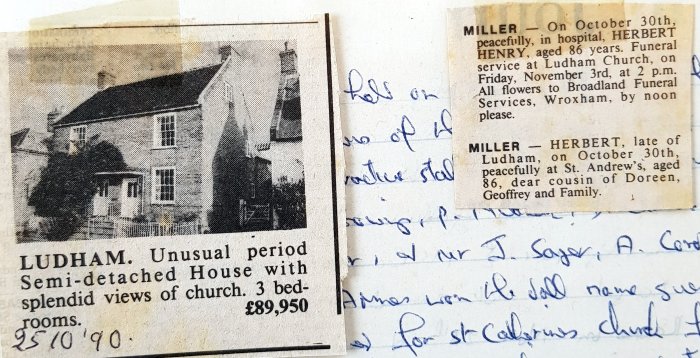 LUDHAM. Unusual period
Semi-detached House with
splendid views of church. 3 bed-
rooms. £89,950
25 10 '90.
MILLER — On October 30th,
peacefully, in hospital, HERBERT
HENRY, aged 86 years. Funeral
service at Ludham Church, on
Friday, November 3rd, at 2 p.m.
All flowers to Broadland Funeral
Services, Wroxham, by noon
please.
MILLER — HERBERT, late of
Ludham, on October 30th,
peacefully at St. Andrew's, aged
86, dear cousin of Doreen,
Geoffrey and Family.
held on
of
J. Sayer, A.
won the doll name
for St Catherines church